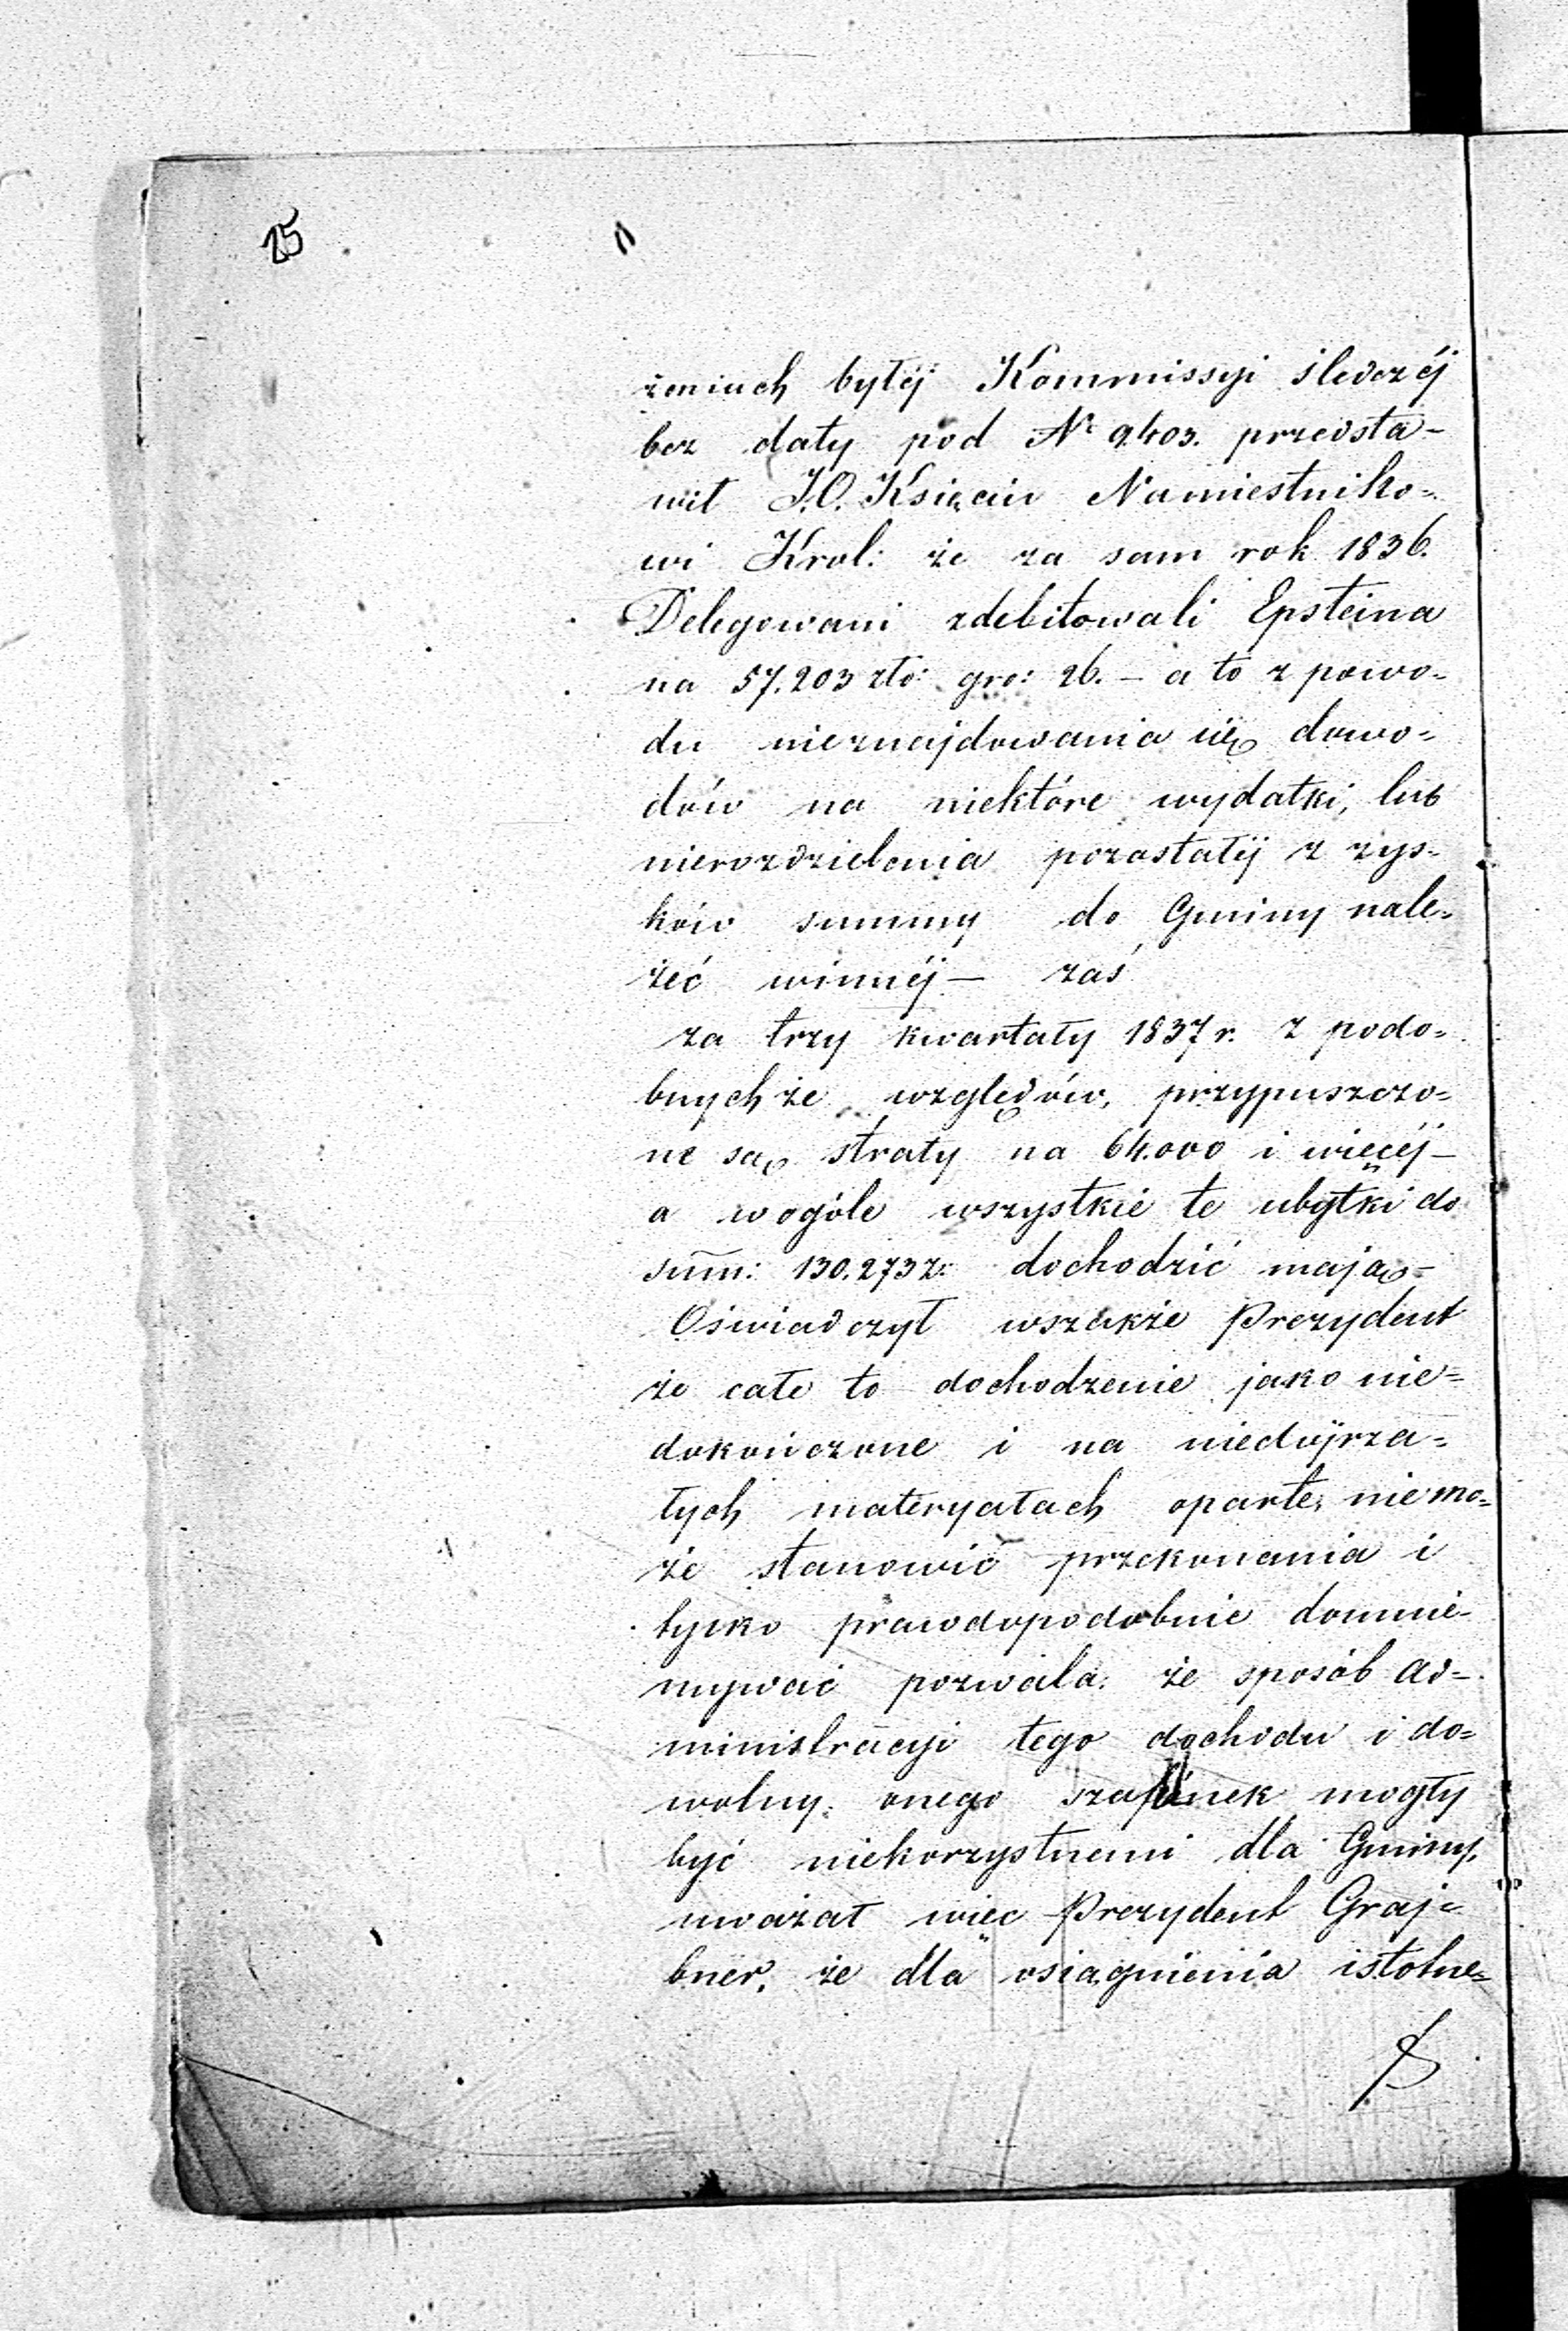 25
żeniach byłéj Kommissyi śledczéj
bez daty pod Nr 9403. przedsta-
wił J.O. Księciu Namiestniko-
wi Krol: że za sam rok 1836.
Delegowani zdebitowali Epsteina
na 57.203 zło: gro: 26. — a to z powo-
du nieznajdowania się dowo-
dów na niektóre wydatki, lub
nierozdzielenia pozostałéj z zys-
ków summy do Gminy nale-
żéć winnéj — zaś
za trzy kwartały 1837 r. z podo-
bnychże względów, przypuszczo-
ne są straty na 64.000 i więcéj —
a wogóle wszystkie te ubytki do
sum̄: 130.273 z: dochodzić mają —
Oświadczył wszakże Prezydent
że całe to dochodzenie jako nie-
dokończone i na niedójrza-
łych materyałach oparte, niemo-
że stanowić przekonania i
tylko prawdopodobnie domnie-
mywać pozwala, że sposób ad-
ministracyi tego dochodu i do-
wolny, onego szafunek mogły
być niekorzystnemi dla Gminy,
uważał więc Prezydent Graj-
bner, że dla osiągnienia istotne-